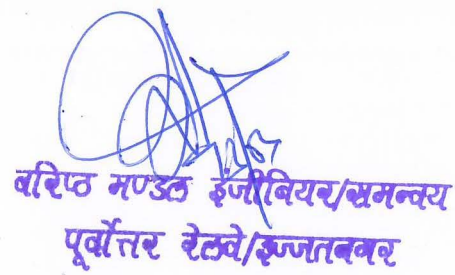 वरिष्ठ मण्डल इंजीनियर/समन्वय
पूर्वोत्तर रेलवे/इज्जतनगर